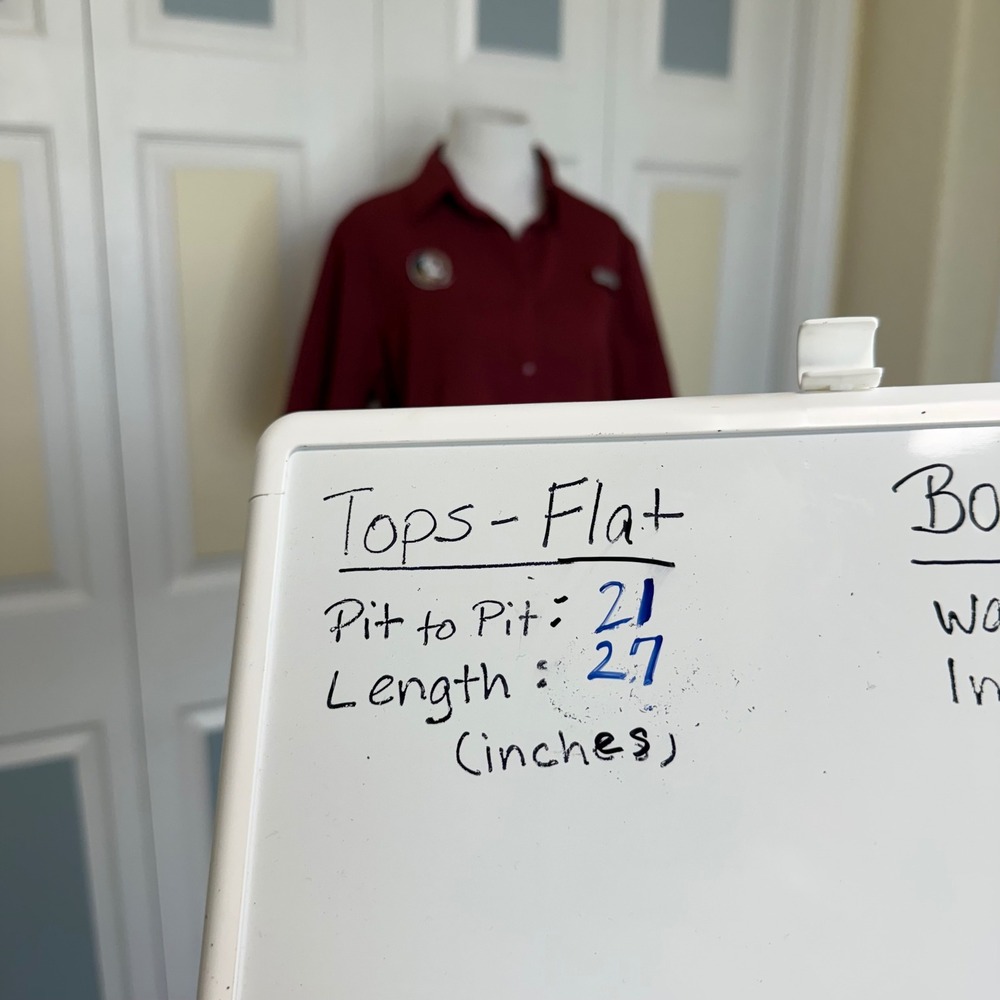 Tops - Flat
Pit to Pit: 21
Length: 27
(inches)
Bo
Wa
In